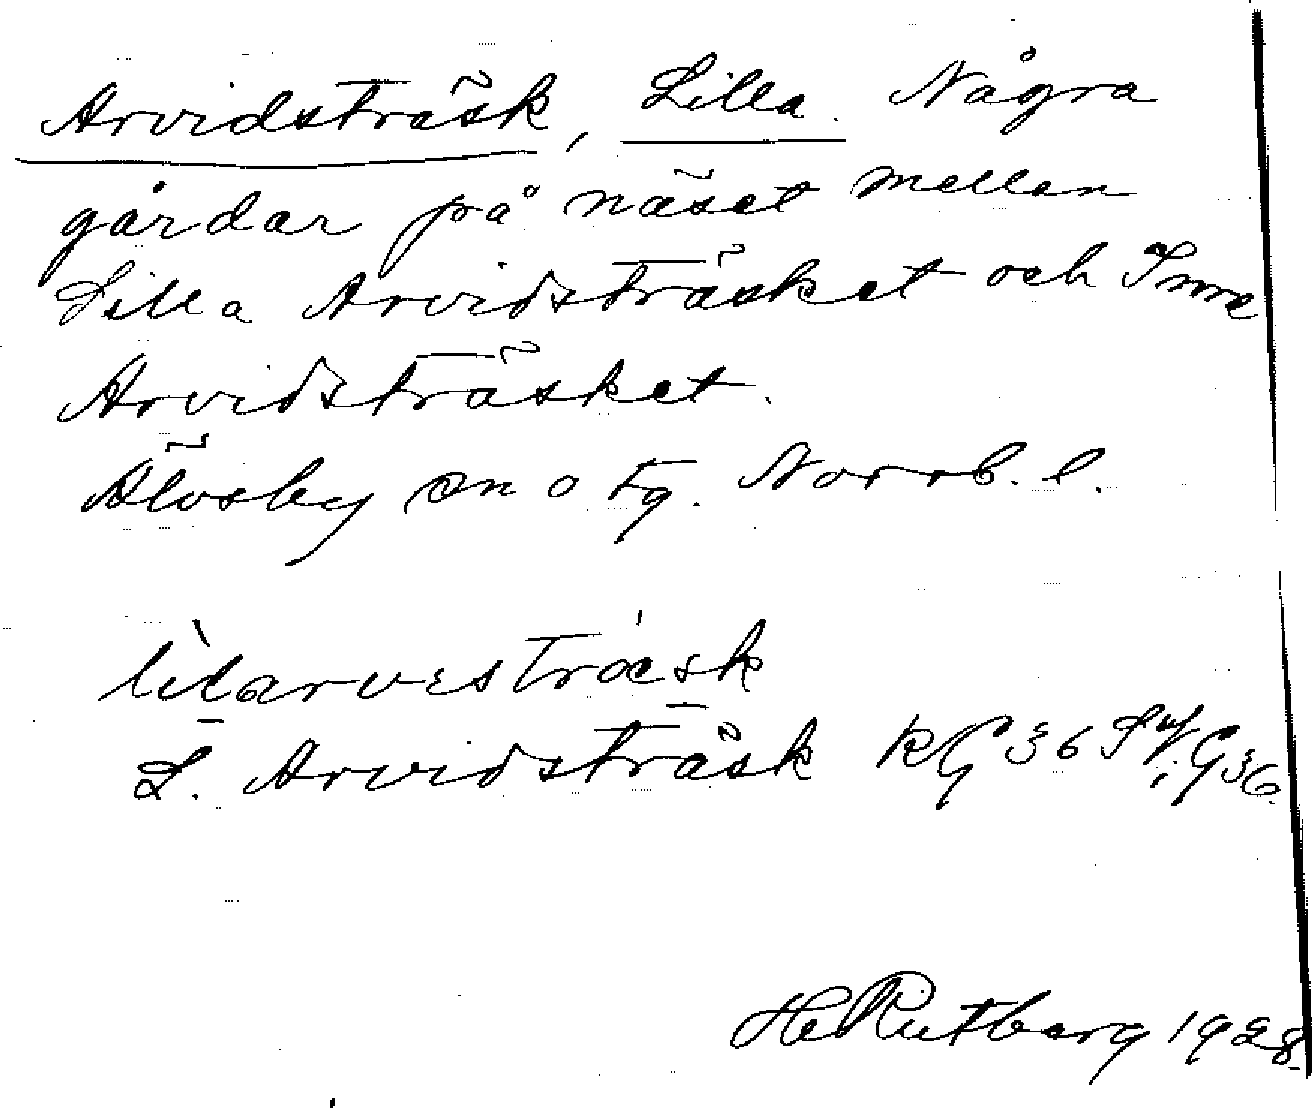 Arvidsträsk, Lilla. Några
gårdar på näset mellan
Lilla Arvidsträsket och Inre
Arvidsträsket.
Älvsby sn o tg. Norrb. l.
lìlarvestrǽsk
L. Arvidsträsk RG 36 G 36
He Rutberg 1928.